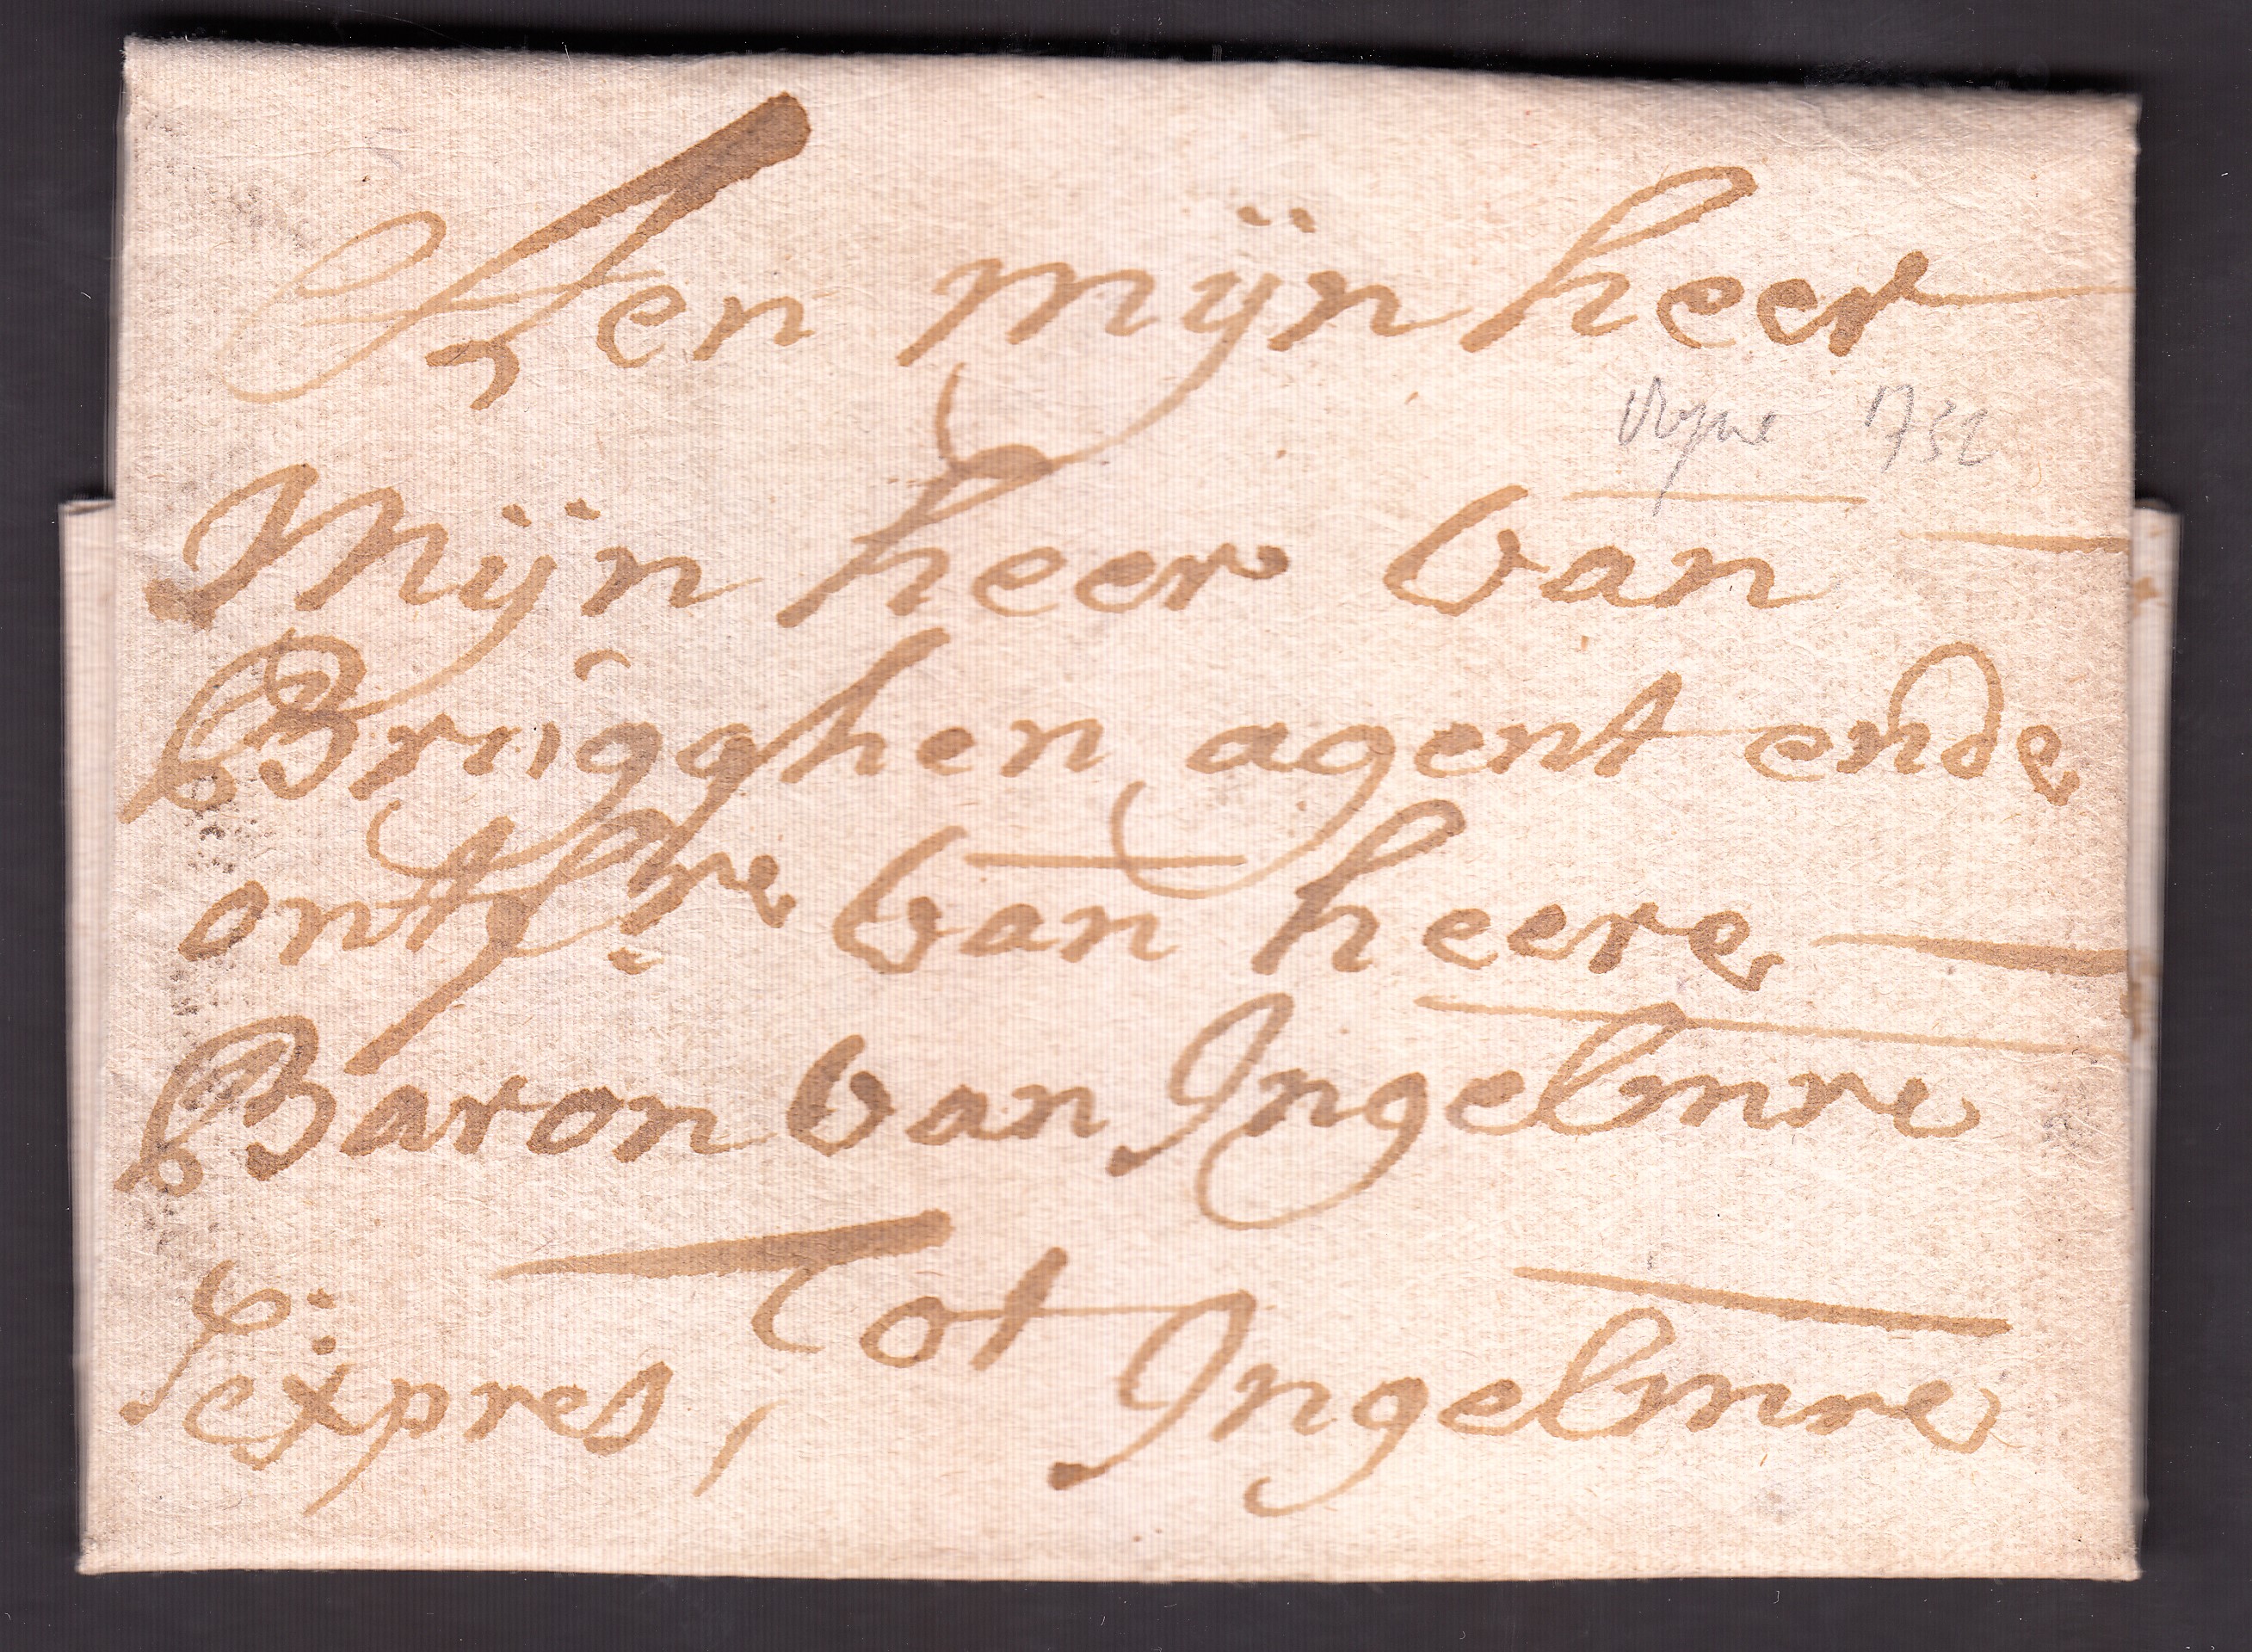 Aen mijn heer
1732
Mijn heer Van
Brugghen agent ende
ontf:re Van heere
Baron Van Ingelmre
Tot Ingelmre
P:r expres,